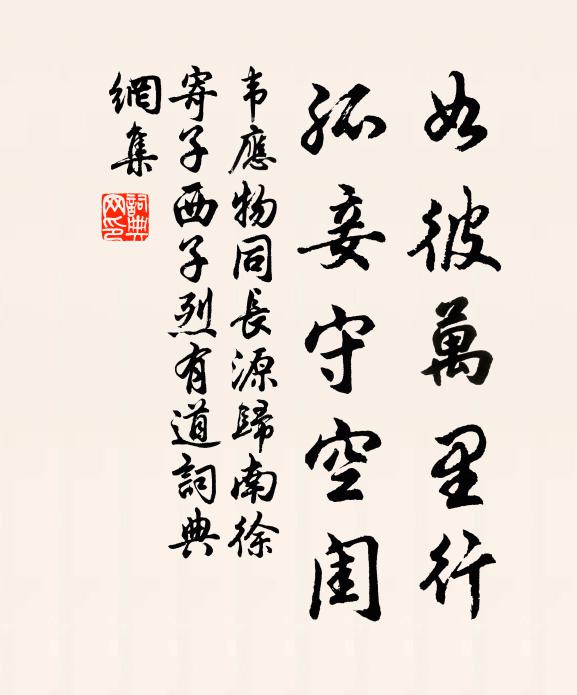 如彼萬里行
孤妾守空閨
韦應物同長源歸南徐
寄子西子烈有道詞典
網集
詞典
网印